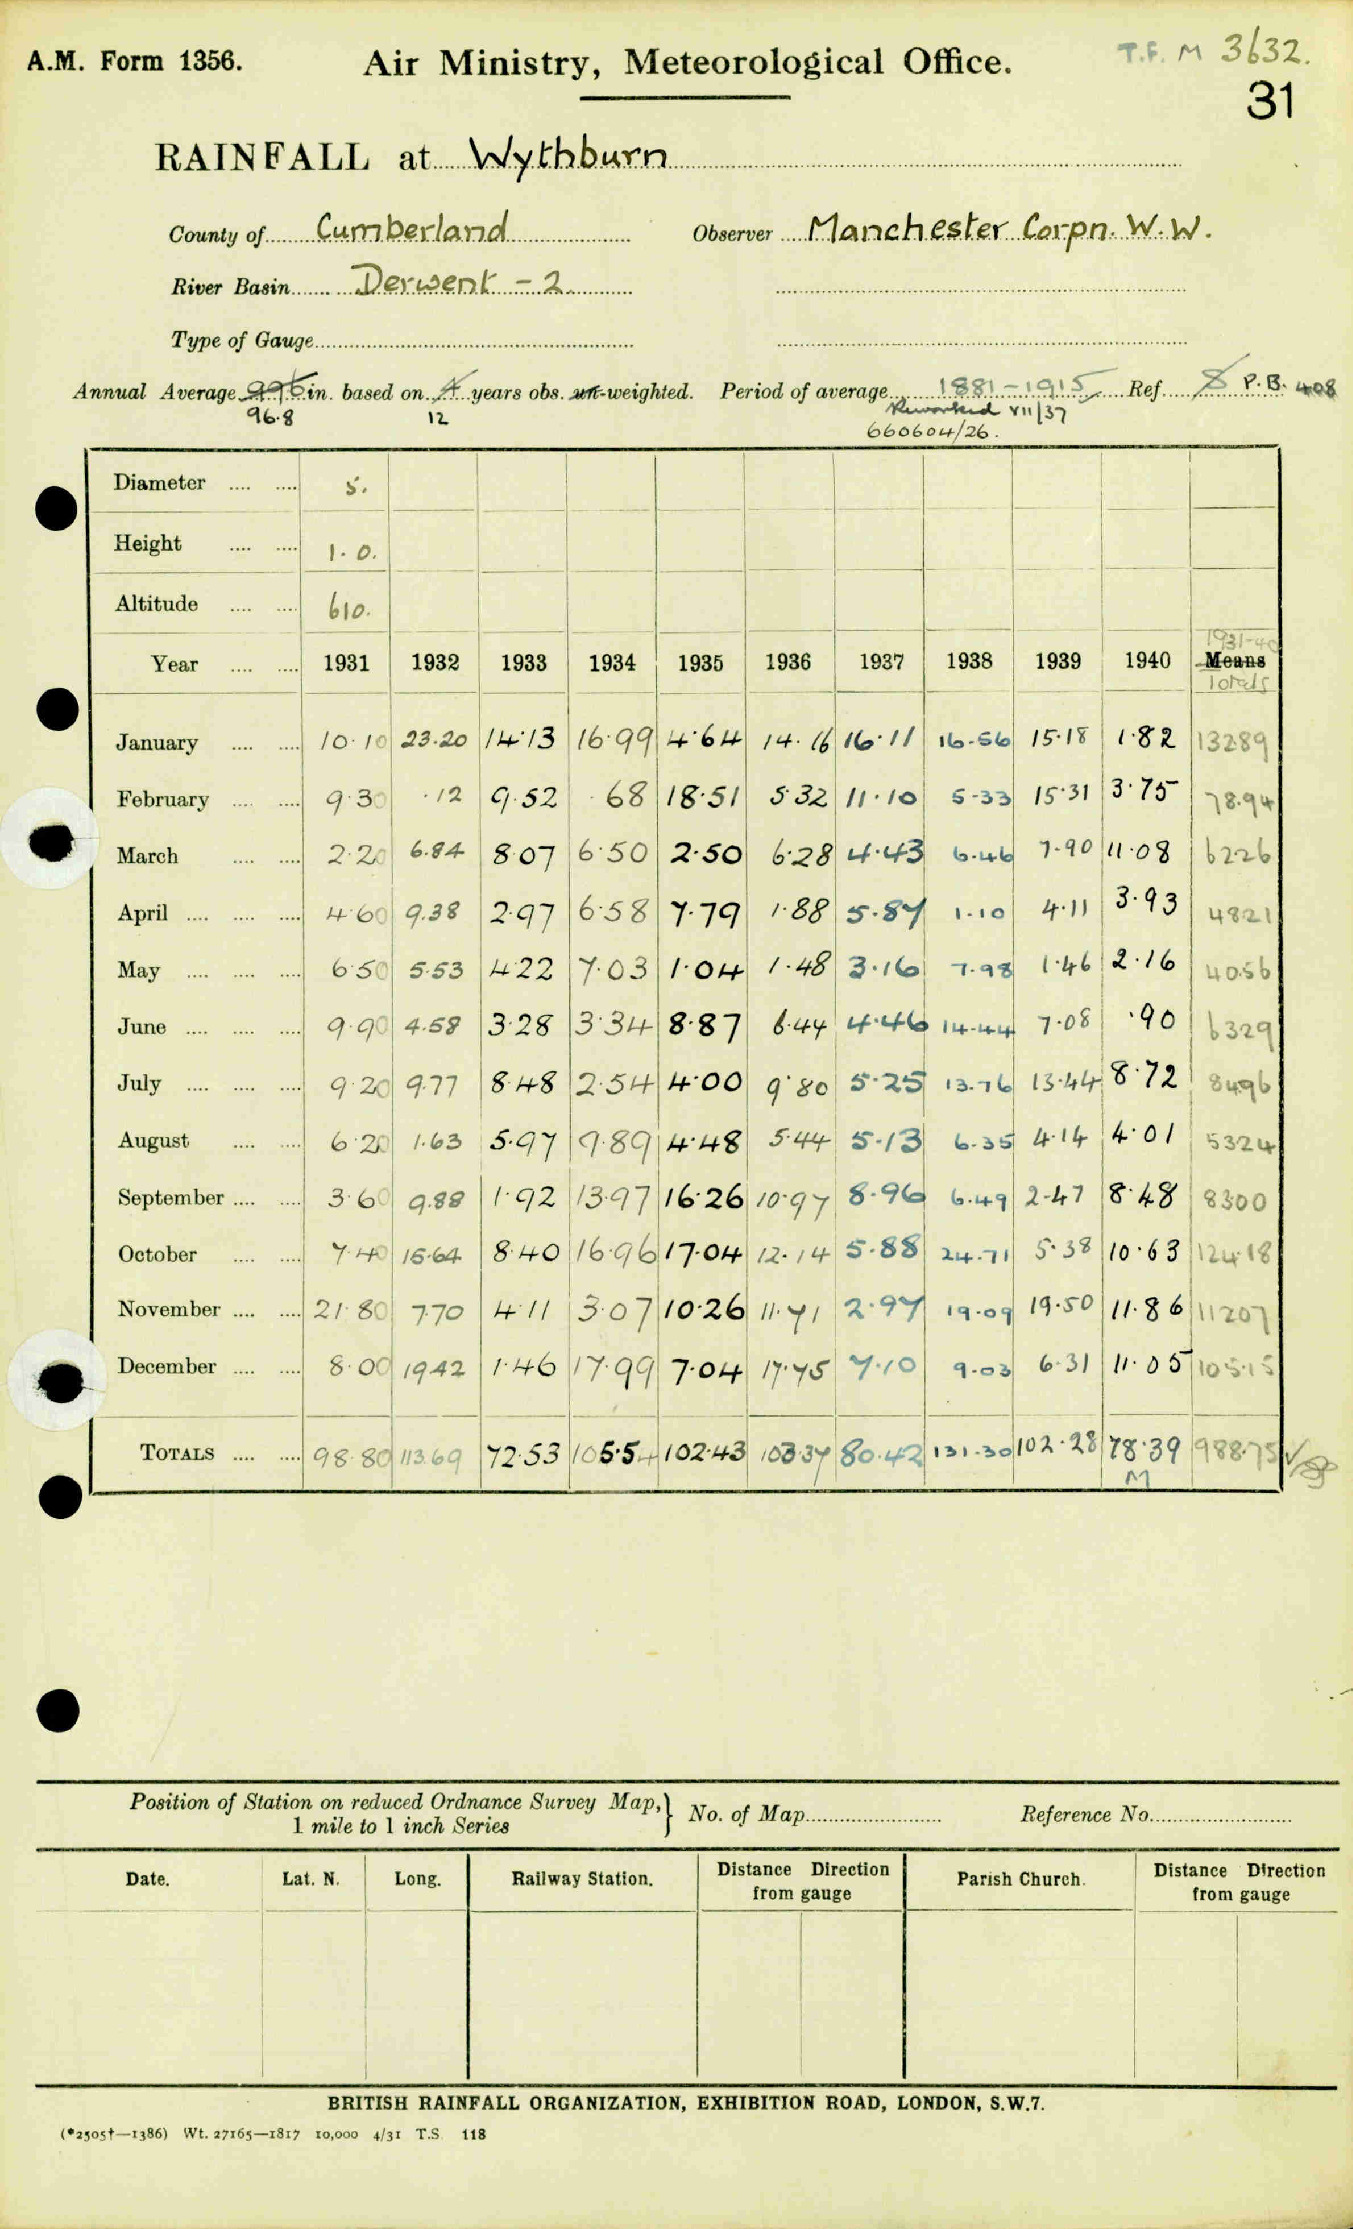 A.M. Form 1356. Air Ministry, Meteorological Office. T.F. M 3632.
31
RAINFALL at Wythburn
County of Cumberland Observer Manchester Corpn. W.W.
River Basin Derwent - 2
Type of Gauge
Annual Average 99.6 in. based on 4 years obs. un-weighted. Period of average 1881-1915 Ref. 8 P.B. 408
96.8 12 Reworked VII/37
660604/26.
Diameter 5.
Height 1.0.
Altitude 610.
1931-40
Year 1931 1932 1933 1934 1935 1936 1937 1938 1939 1940 Means
Totals
January 10.10 23.20 14.13 16.99 4.64 14.16 16.11 16.56 15.18 1.82 132.89
February 9.30 .12 9.52 .68 18.51 5.32 11.10 5.33 15.31 3.75 78.94
March 2.20 6.84 8.07 6.50 2.50 6.28 4.43 6.46 7.90 11.08 62.26
April 4.60 9.38 2.97 6.58 7.79 1.88 5.87 1.10 4.11 3.93 48.21
May 6.50 5.53 4.22 7.03 1.04 1.48 3.16 7.98 1.46 2.16 40.56
June 9.90 4.58 3.28 3.34 8.87 6.44 4.46 14.44 7.08 .90 63.29
July 9.20 9.77 8.48 2.54 4.00 9.80 5.25 13.76 13.44 8.72 84.96
August 6.20 1.63 5.97 9.89 4.48 5.44 5.13 6.35 4.14 4.01 53.24
September 3.60 9.88 1.92 13.97 16.26 10.97 8.96 6.49 2.47 8.48 83.00
October 7.40 15.64 8.40 16.96 17.04 12.14 5.88 24.71 5.38 10.63 124.18
November 21.80 7.70 4.11 3.07 10.26 11.71 2.97 19.09 19.50 11.86 112.07
December 8.00 19.42 1.46 17.99 7.04 17.75 7.10 9.03 6.31 11.05 105.15
TOTALS 98.80 113.69 72.53 105.54 102.43 103.37 80.42 131.30 102.28 78.39 988.75
M
Position of Station on reduced Ordnance Survey Map, } No. of Map Reference No.
1 mile to 1 inch Series
Date. Lat. N. Long. Railway Station. Distance Direction from gauge Parish Church. Distance Direction from gauge
BRITISH RAINFALL ORGANIZATION, EXHIBITION ROAD, LONDON, S.W.7.
(*2505†—1386) Wt. 27165—1817 10,000 4/31 T.S. 118